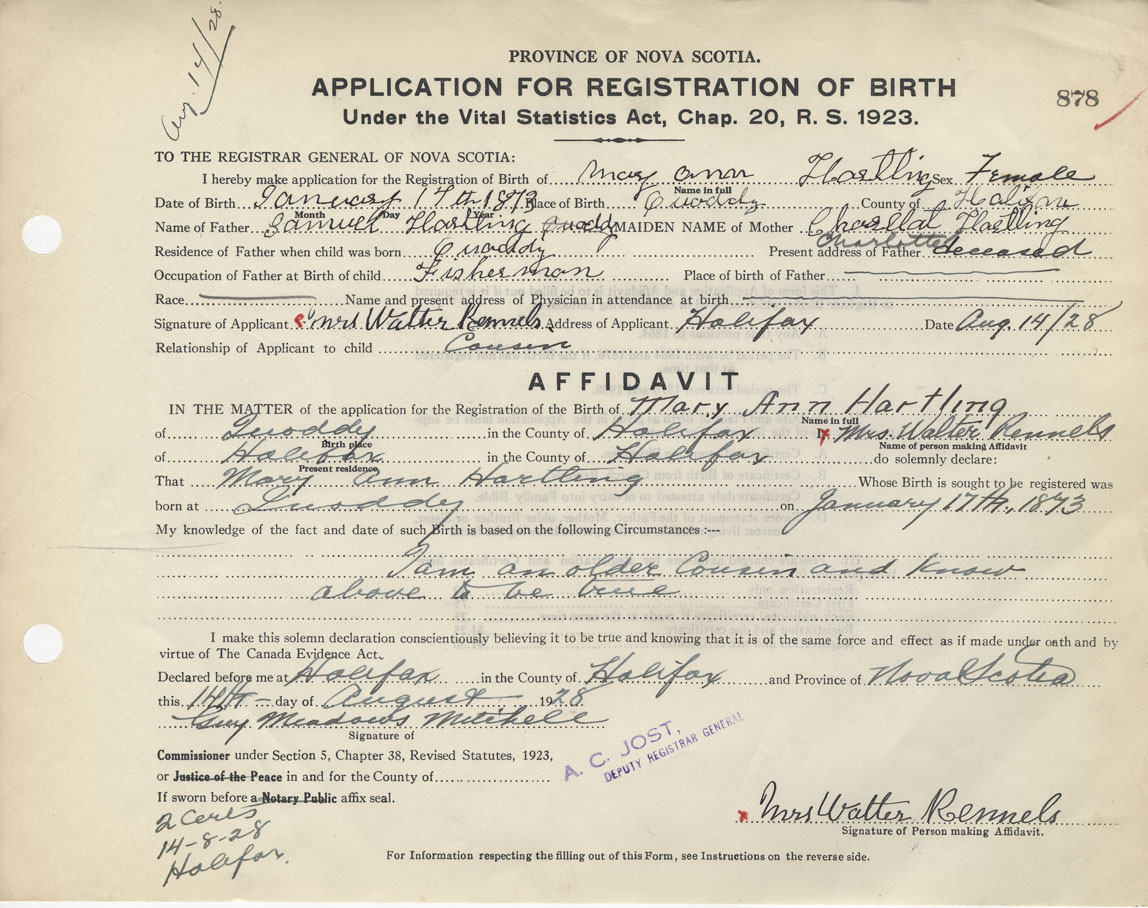 Aug. 14/28.
PROVINCE OF NOVA SCOTIA.
APPLICATION FOR REGISTRATION OF BIRTH
878
Under the Vital Statistics Act, Chap. 20, R. S. 1923.
TO THE REGISTRAR GENERAL OF NOVA SCOTIA:
I hereby make application for the Registration of Birth of Mary Ann Hartling Sex Female
Name in full
Date of Birth January 17th 1873 Place of Birth Quoddy County of Halifax
Month Day Year
Name of Father Samuel Hartling Quoddy MAIDEN NAME of Mother Charllat Hartling
Charlotte
Residence of Father when child was born Quoddy Present address of Father deceased
Occupation of Father at Birth of child Fisherman Place of birth of Father
Race Name and present address of Physician in attendance at birth
Signature of Applicant Mrs Walter Rennels Address of Applicant Halifax Date Aug. 14/28
Relationship of Applicant to child Cousin
AFFIDAVIT
IN THE MATTER of the application for the Registration of the Birth of Mary Ann Hartling
Name in full
of Quoddy in the County of Halifax I, Mrs. Walter Rennels
Birth place Name of person making Affidavit
of Halifax in the County of Halifax do solemnly declare:
Present residence
That Mary Ann Hartling Whose Birth is sought to be registered was
born at Quoddy on January 17th, 1873
My knowledge of the fact and date of such Birth is based on the following Circumstances :—
I am an older Cousin and know
above to be true
I make this solemn declaration conscientiously believing it to be true and knowing that it is of the same force and effect as if made under oath and by
virtue of The Canada Evidence Act.
Declared before me at Halifax in the County of Halifax and Province of Nova Scotia
this 14th day of August 1928
Guy Meadows Mitchell
Signature of
A. C. JOST,
DEPUTY REGISTRAR GENERAL
Commissioner under Section 5, Chapter 38, Revised Statutes, 1923,
or Justice of the Peace in and for the County of
If sworn before a Notary Public affix seal.
2 Certs
14-8-28
Halifax.
Mrs Walter Rennels
Signature of Person making Affidavit.
For Information respecting the filling out of this Form, see Instructions on the reverse side.